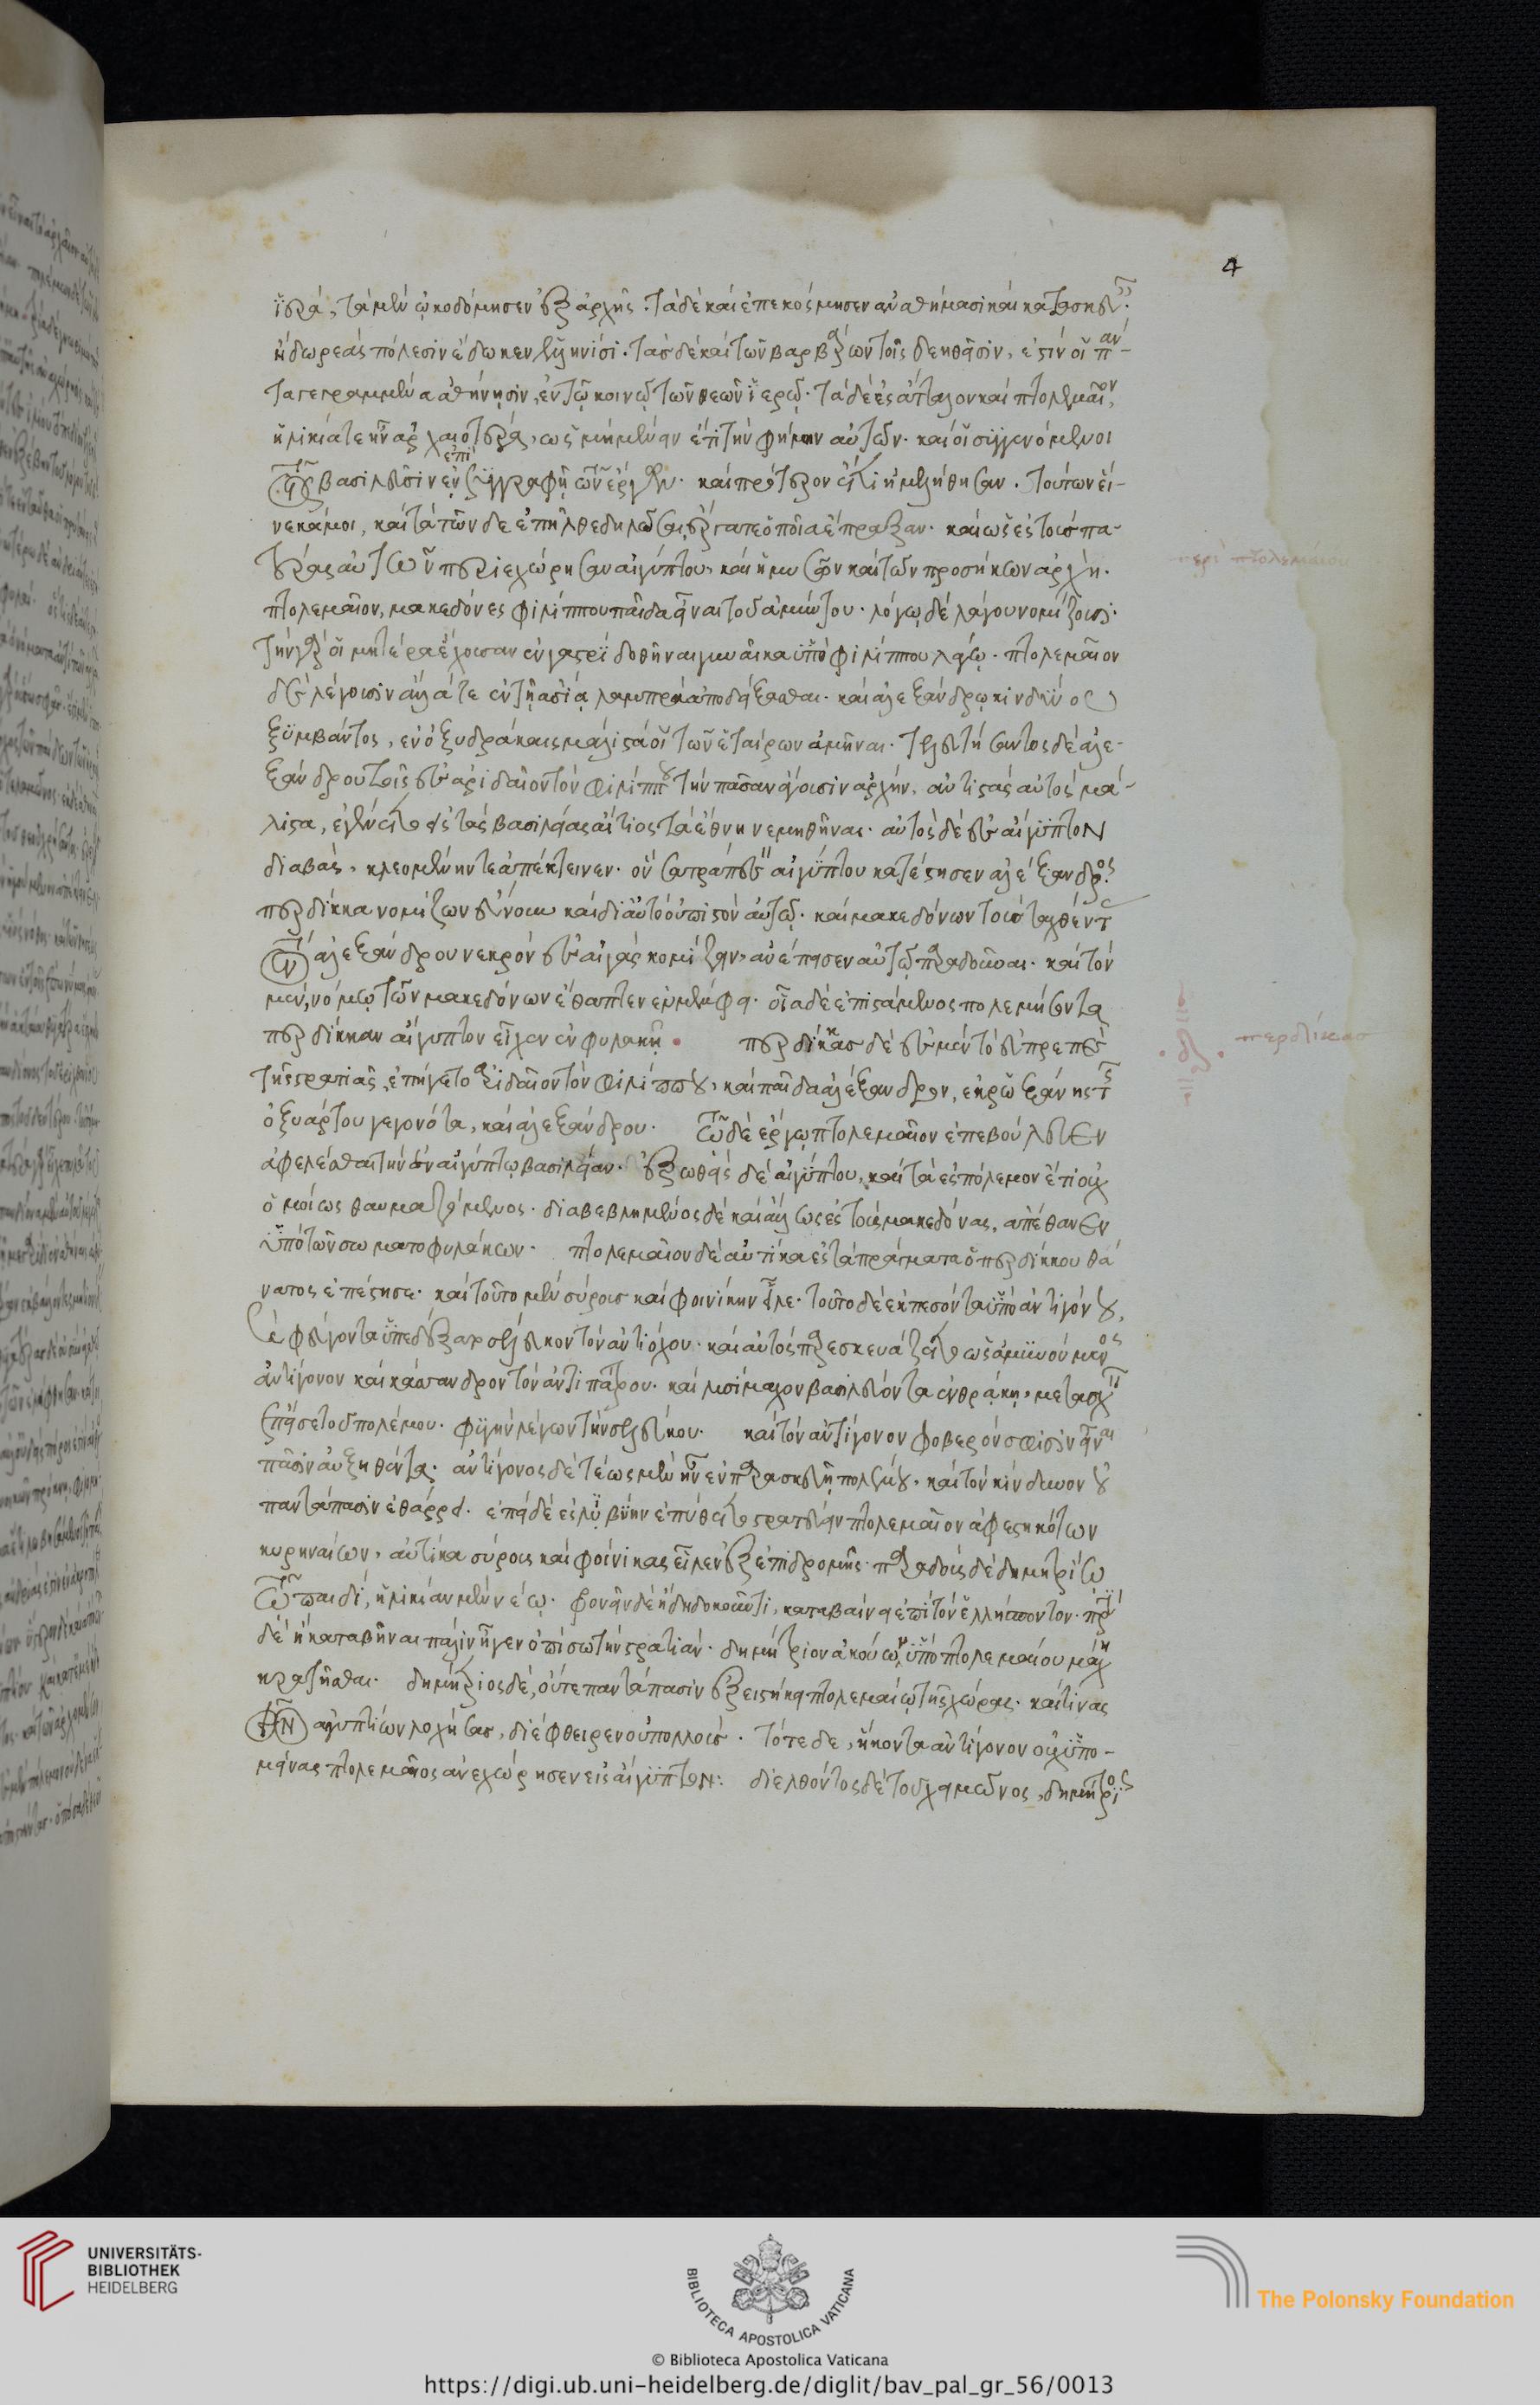 4
ἱερὰ, τὰ μὲν ὠκοδόμησεν ἐξ ἀρχῆς· τὰ δὲ καὶ ἐπεκόσμησεν ἀναθήμασι καὶ κατασκευαῖς·
ἢ δωρεὰς πόλεσιν ἔδωκεν ἑλληνίσι· τὰς δὲ καὶ τῶν βαρβάρων τοῖς δεηθεῖσιν, ἐστίν οἱ πάν-
τα γεγραμμένα ἀθήνῃσιν, ἐν τῷ κοινῷ τῶν θεῶν ἱερῷ· τὰ δὲ ἐς ἄτταλον καὶ πτολεμαῖον,
ἡλικία τε ἦν ἀρχαιότερα, ὡς μὴ μένειν ἔτι τὴν φήμην αὐτῶν· καὶ οἱ συγγενόμενοι
ἐπὶ
τοῖς βασιλεῦσιν ἐν συγγραφῇ τῶν ἔργων· καὶ πρότερον ἔτι ἠμελήθησαν. τούτων εἵ-
νεκά μοι, καὶ τὰ τῶνδε ἐπῆλθε δηλῶσαι ἔργα τε ὁποῖα ἔπραξαν· καὶ ὡς ἐς τοὺς πα-
τέρας αὐτῶν περιεχώρησαν αἰγύπτου, καὶ ἡ μυσῶν καὶ τῶν προσήκων ἀρχή·
περὶ πτολεμαίου
πτολεμαῖον, μακεδόνες φιλίππου παῖδα εἶναι τοῦ ἀμύντου· λόγῳ δὲ λάγου νομίζουσι·
τὴν γάρ οἱ μητέρα ἔχουσαν ἐν γαστρὶ δοθῆναι γυναῖκα ὑπὸ φιλίππου λάγῳ· πτολεμαῖον
δὲ λέγουσιν ἄλλα τε ἐν τῇ ἀσίᾳ λαμπρὰ ἀποδείξασθαι· καὶ ἀλεξάνδρῳ κινδύνου
ξυμβάντος, ἐν ὀξυδράκαις μάλιστά οἱ τῶν ἑταίρων ἀμῦναι· τελευτήσαντος δὲ ἀλε-
ξάνδρου τοῖς ἐς ἀριδαῖον τὸν φιλίππου τὴν πᾶσαν ἄγουσιν ἀρχὴν, ἀντιστὰς αὐτὸς μά-
λιστα, ἐγένετο ἐς τὰς βασιλείας αἴτιος τὰ ἔθνη νεμηθῆναι· αὐτὸς δὲ ἐς αἴγυπτον
διαβὰς, κλεομένην τε ἀπέκτεινεν· ὃν σατραπεύειν αἰγύπτου κατέστησεν ἀλέξανδρος
περδίκκᾳ νομίζων εὔνουν καὶ δι αὐτὸ οὐ πιστὸν αὐτῷ· καὶ μακεδόνων τοὺς ταχθέντας
τὸν ἀλεξάνδρου νεκρὸν ἐς αἰγὰς κομίζειν, ἀνέπεισεν αὐτῷ παραδοῦναι· καὶ τὸν
μὲν, νόμῳ τῶν μακεδόνων ἔθαπτεν ἐν μέμφει· οἷα δὲ ἐπιστάμενος πολεμήσοντα
περδίκκαν αἴγυπτον εἶχεν ἐν φυλακῇ· περδίκκας δὲ ἐς μὲν τὸ εὐπρεπὲς
περδίκκασ
τῆς στρατιᾶς, ἐπήγετο ἀριδαῖον τὸν φιλίππου, καὶ παῖδα ἀλέξανδρον, ἐκ ῥωξάνης τῆς
ὀξυάρτου γεγονότα, καὶ ἀλεξάνδρου· τῷ δὲ ἔργῳ πτολεμαῖον ἐπεβούλευεν
ἀφελέσθαι τὴν ἐν αἰγύπτῳ βασιλείαν· ἐξωσθεὶς δὲ αἰγύπτου, καὶ τὰ ἐς πόλεμον ἔτι οὐχ
ὁμοίως θαυμαζόμενος· διαβεβλημένος δὲ καὶ ἄλλως ἐς τοὺς μακεδόνας, ἀπέθανεν
ὑπὸ τῶν σωματοφυλάκων· πτολεμαῖον δὲ αὐτίκα ἐς τὰ πράγματα ὁ περδίκκου θά
νατος ἐπέστησε· καὶ τοῦτο μὲν σύρους καὶ φοινίκην εἷλε· τοῦτο δὲ ἐκπεσόντα ὑπὸ ἀντιγόνου,
καὶ φεύγοντα ὑπεδέξατο σέλευκον τὸν ἀντιόχου· καὶ αὐτὸς παρεσκευάζετο ὡς ἀμυνούμενος
ἀντίγονον καὶ κάσσανδρον τὸν ἀντιπάτρου· καὶ λυσίμαχον βασιλεύοντα ἐν θράκῃ, μετασχεῖν
ἔπεισε τοῦ πολέμου· φυγὴν λέγων τὴν σελεύκου· καὶ τὸν ἀντίγονον φοβερόν σφισιν εἶναι
πᾶσιν αὐξηθέντα· ἀντίγονος δὲ τέως μὲν ἦν ἐν παρασκευῇ πολέμου, καὶ τὸν κίνδυνον οὐ
παντάπασιν ἐθάρρει· ἐπεὶ δὲ ἐς λιβύην ἐπύθετο στρατεύειν πτολεμαῖον ἀφεστηκότων
κυρηναίων, αὐτίκα σύρους καὶ φοίνικας εἷλεν ἐξ ἐπιδρομῆς· παραδοὺς δὲ δημητρίῳ
τῷ παιδὶ, ἡλικίαν μὲν νέῳ· φρονεῖν δὲ ἤδη δοκοῦντι, καταβαίνει ἐπὶ τὸν ἑλλήσποντον· πρὶν
δὲ ἢ καταβῆναι πάλιν ἦγεν ὀπίσω τὴν στρατιὰν· δημήτριον ἀκούων ὑπὸ πτολεμαίου μάχῃ
κρατῆσθαι· δημήτριος δὲ, οὔτε παντάπασιν ἐξειστήκει πτολεμαίῳ τῆς χώρας· καί τινας
τῶν αἰγυπτίων λοχήσας, διέφθειρεν οὐ πολλούς. τότε δε, ἥκοντα ἀντίγονον οὐχ ὑπο-
μείνας πτολεμαῖος ἀνεχώρησεν εἰς αἴγυπτον: διελθόντος δὲ τοῦ χειμῶνος, δημήτριος
UNIVERSITÄTS-
BIBLIOTHEK
HEIDELBERG
BIBLIOTECA APOSTOLICA VATICANA
The Polonsky Foundation
© Biblioteca Apostolica Vaticana
https://digi.ub.uni-heidelberg.de/diglit/bav_pal_gr_56/0013